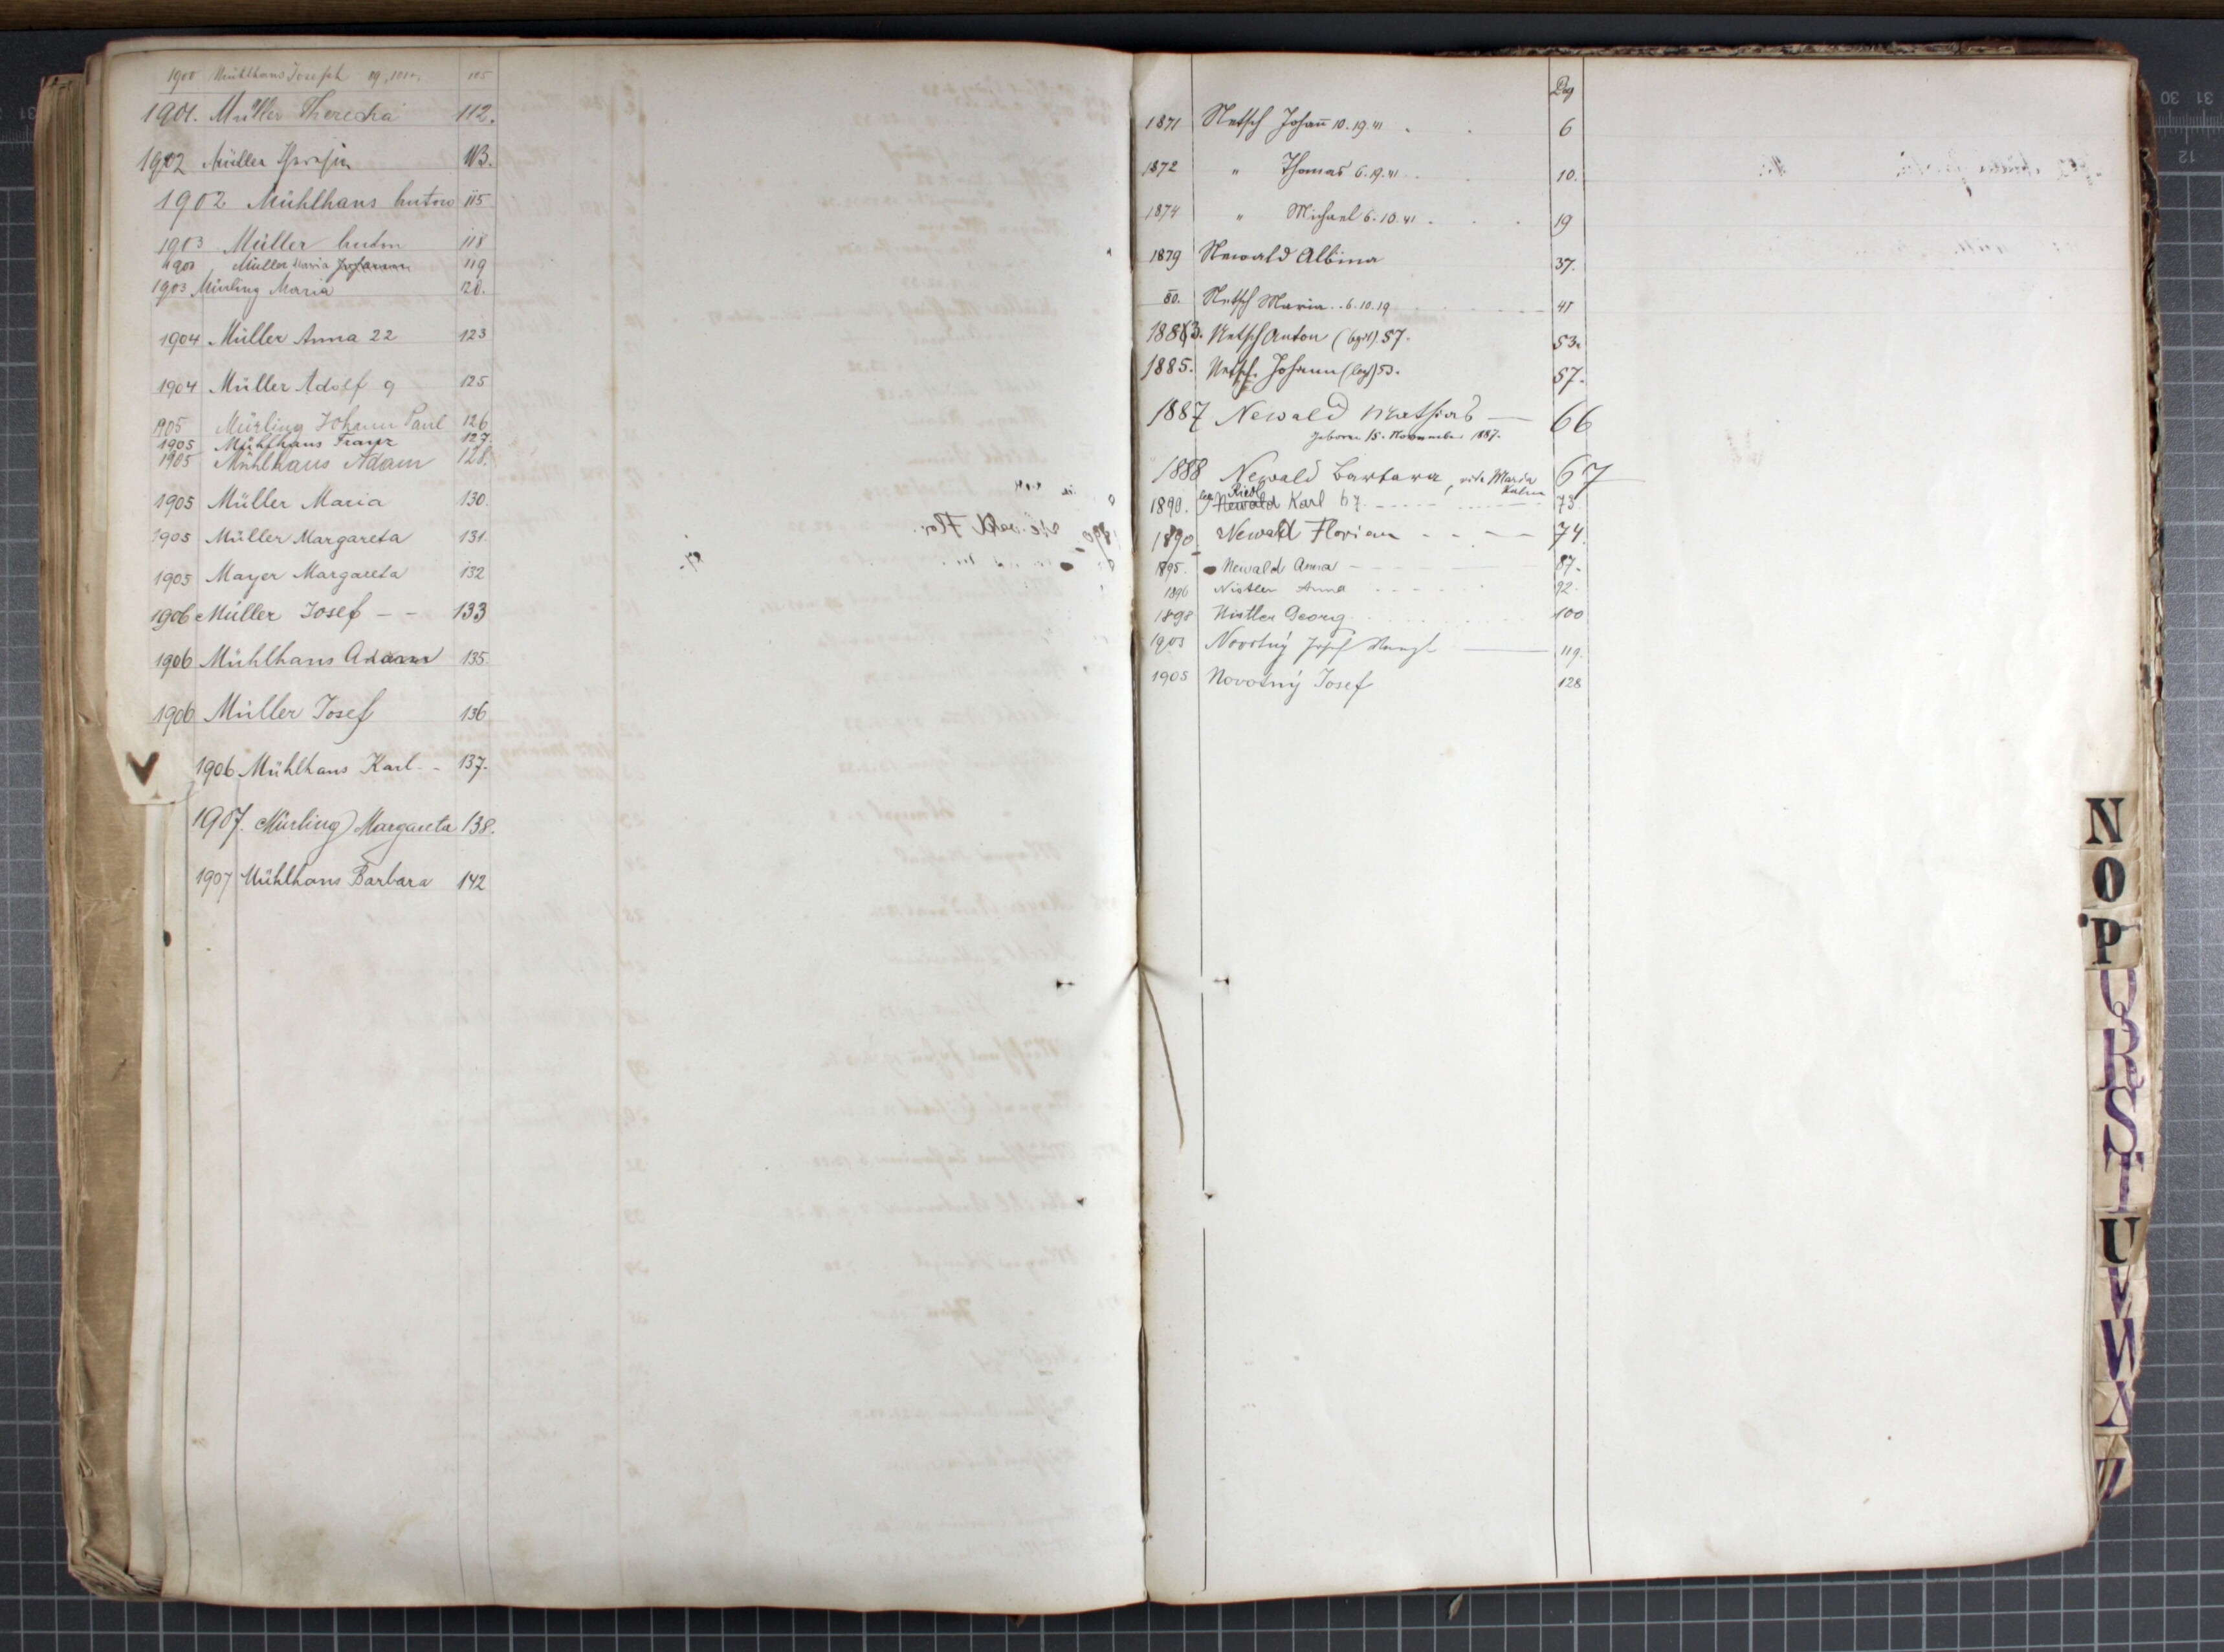 1900 Mühlhans Joseph 19, 105
1901. Müller Theresia 112.
1902 Müller 113.
1902 Mühlhans Anton 115
1903 Müller Anton 118
1903 Müller Maria Johanna 119
1903 Mürling Maria 120.
1904 Müller Anna 22 123
1904 Müller Adolf 9 125
1905 Mürling Johann Paul 126
1905 Mühlhans Franz 127.
1905 Mühlhans Adam 128.
1905 Müller Maria 130.
1905 Müller Margareta 131.
1905 Mayer Margareta 132
1906 Müller Josef - - 133
1906 Mühlhans Adam 135
1906 Müller Josef 136
1906 Mühlhans Karl - - 137.
1907. Mürling Margareta 138.
1907 Mühlhans Barbara 142
V
Pag
1871 Netsch Johann 10. 19. 41 6
1872 " Thomas 6. 19. 41 10.
1874 " Michael 6. 10. 41 19
1879 Newald Albina 37.
80. Netsch Maria . . 6. 10. 19 41
1883. Netsch Anton 57. 53.
1885. Netsch Johann (leg) 53. 57.
1887 Newald Mathias — 66
Geboren 15. November 1887.
1888 Newald Barbara, vide Maria 67
Riedl
1890. leg Newald Karl 67 73.
1890 Newald Florian - - - - 74.
1895. Newald Anna 87.
1896 Nistler Anna 92.
1898 Nistler Georg 100
1903 Novotný Josef 119.
1905 Novotný Josef 128
N
O
P
Q
R
S
T
U
V
W
X
Z